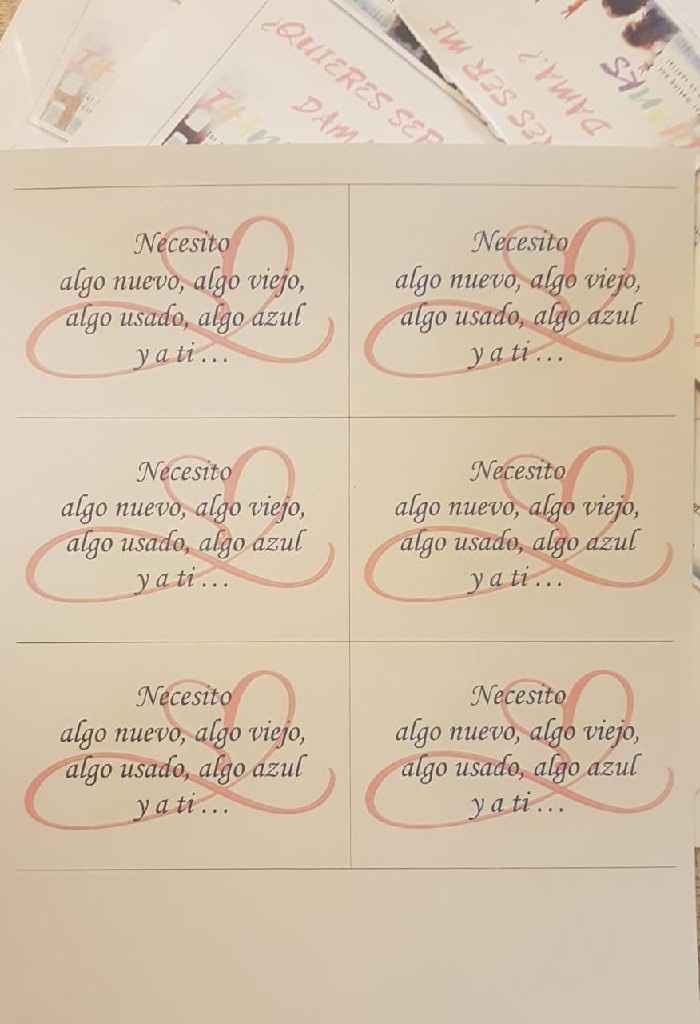 ¿QUIERES SER
DAM
ES SER MI
DAMA?
Necesito
algo nuevo, algo viejo,
algo usado, algo azul
y a ti . . .
Necesito
algo nuevo, algo viejo,
algo usado, algo azul
y a ti . . .
Necesito
algo nuevo, algo viejo,
algo usado, algo azul
y a ti . . .
Necesito
algo nuevo, algo viejo,
algo usado, algo azul
y a ti . . .
Necesito
algo nuevo, algo viejo,
algo usado, algo azul
y a ti . . .
Necesito
algo nuevo, algo viejo,
algo usado, algo azul
y a ti . . .